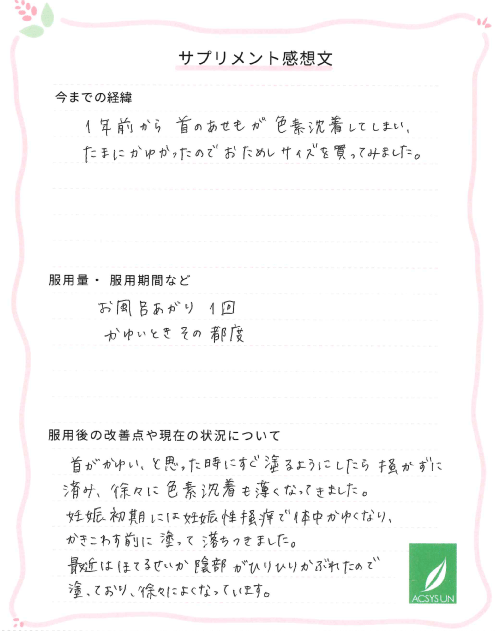 サプリメント感想文
今までの経緯
1年前から 首のあせもが 色素沈着してしまい、
たまにかゆかったので おためしサイズを買ってみました。
服用量・ 服用期間など
お風呂あがり 1回
かゆいとき その 都度
服用後の改善点や現在の状況について
首がかゆい、と思った時にすぐ塗るようにしたら 掻かずに
済み、徐々に 色素沈着も薄くなってきました。
妊娠初期には妊娠性掻痒で体中かゆくなり、
かきこわす前に 塗って 落ちつきました。
最近はほてるせいか 陰部 がひりひりかぶれたので
塗っており、徐々によくなっています。
ACSYSUN